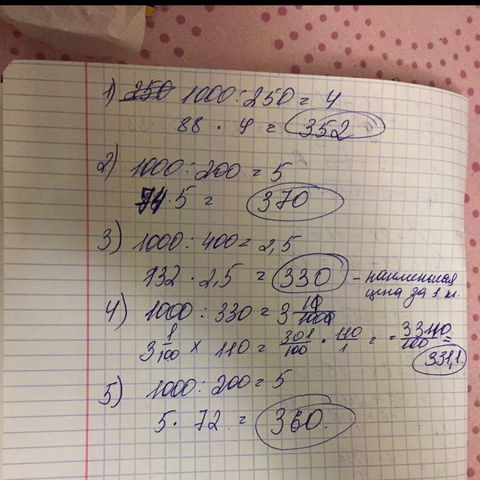 1) 250 1000 : 250 = 4
88 · 4 = 352
2) 1000 : 200 = 5
74 · 5 = 370
3) 1000 : 400 = 2,5
132 · 2,5 = 330 - наименьшая
цена за 1 кг.
4) 1000 : 330 = 3 10/1000
3 1/100 × 110 = 301/100 · 110/1 = 33110/100 =
331,1
5) 1000 : 200 = 5
5 · 72 = 360.